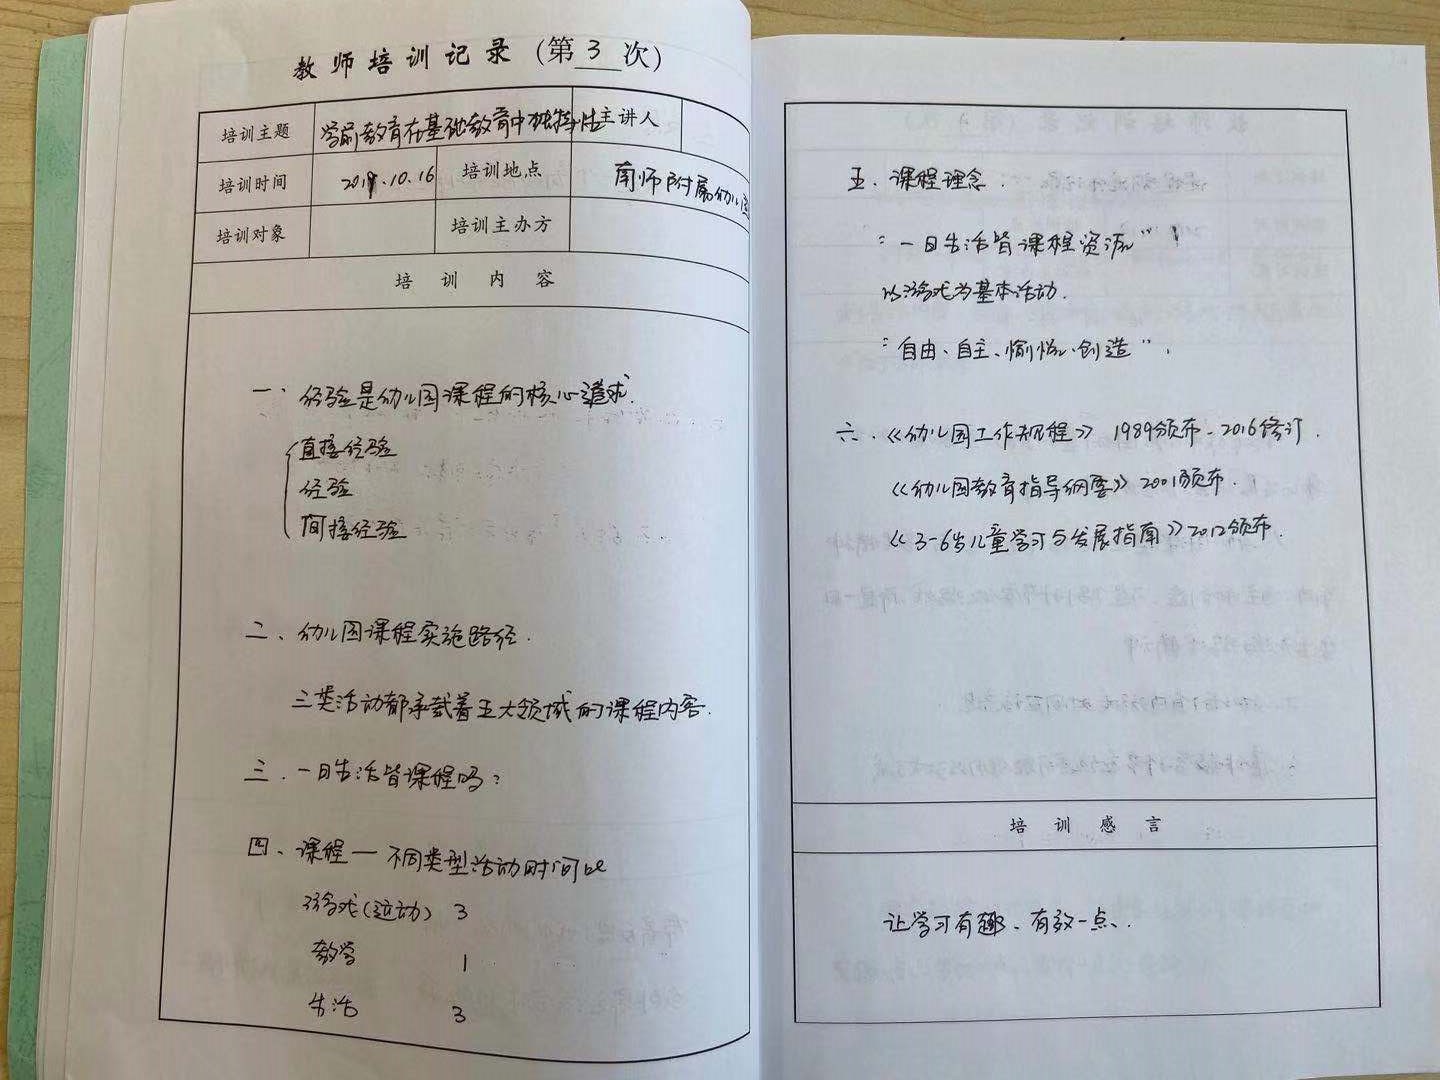 教师培训记录（第3次）
培训主题 学前教育在基础教育中独特性 主讲人
培训时间 2019.10.16 培训地点 南师附属幼儿园
培训对象 培训主办方
培训内容
一、经验是幼儿园课程的核心追求.
直接经验
经验
间接经验
二、幼儿园课程实施路径.
三类活动都承载着五大领域的课程内容.
三、一日生活皆课程吗?
四、课程—不同类型活动时间比
游戏(运动) 3
教学 1
生活 3
五、课程理念.
"一日生活皆课程资源"!
以游戏为基本活动.
"自由、自主、愉悦、创造".
六、《幼儿园工作规程》 1989颁布-2016修订.
《幼儿园教育指导纲要》2001颁布.
《3-6岁儿童学习与发展指南》2012颁布.
培训感言
让学习有趣、有效一点.